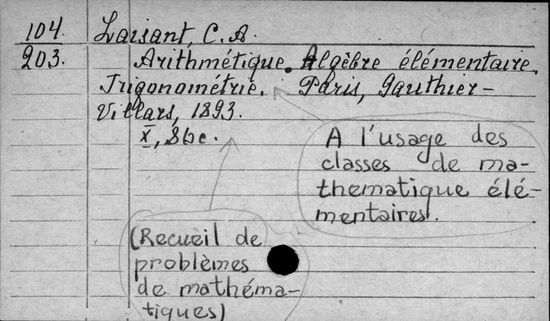 104. Laisant, C.A.
203. Arithmétique. Algèbre élémentaire.
Trigonométrie. Paris, Gauthier-
Villars, 1893.
X,
A l'usage des
classes de ma-
thematique élé-
mentaires.
(Recueil de
problèmes
de mathéma-
tiques)